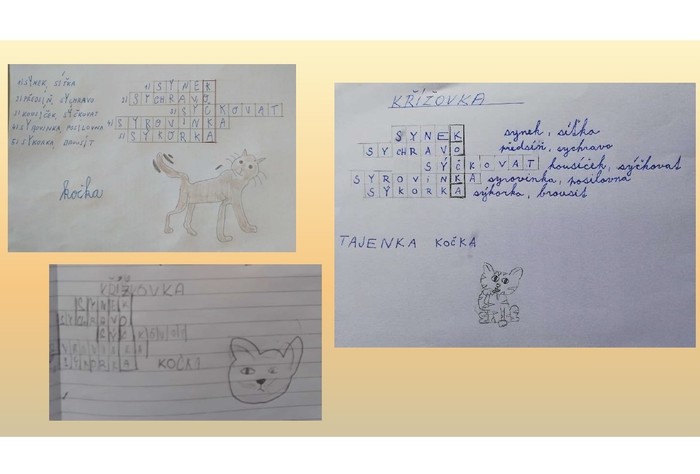 1) SYNEK, SÍŤKA
2) PŘEDSÍŇ, SYCHRAVO
3) KOUSÍČEK, SÝČKOVAT
4) SYROVINKA, POSILOVNA
5) SÝKORKA, BROUSIT
1) SYNEK
2) SYCHRAVO
3) SÝČKOVAT
4) SYROVINKA
5) SÝKORKA
kočka
KŘÍŽOVKA
SYNEK synek, síťka
SYCHRAVO předsíň, sychravo
SÝČKOVAT kousíček, sýčkovat
SYROVINKA syrovinka, posilovna
SÝKORKA sýkorka, brousit
TAJENKA KOČKA
KŘÍŽOVKA
SYNEK
SÝKORKA
KOČKA